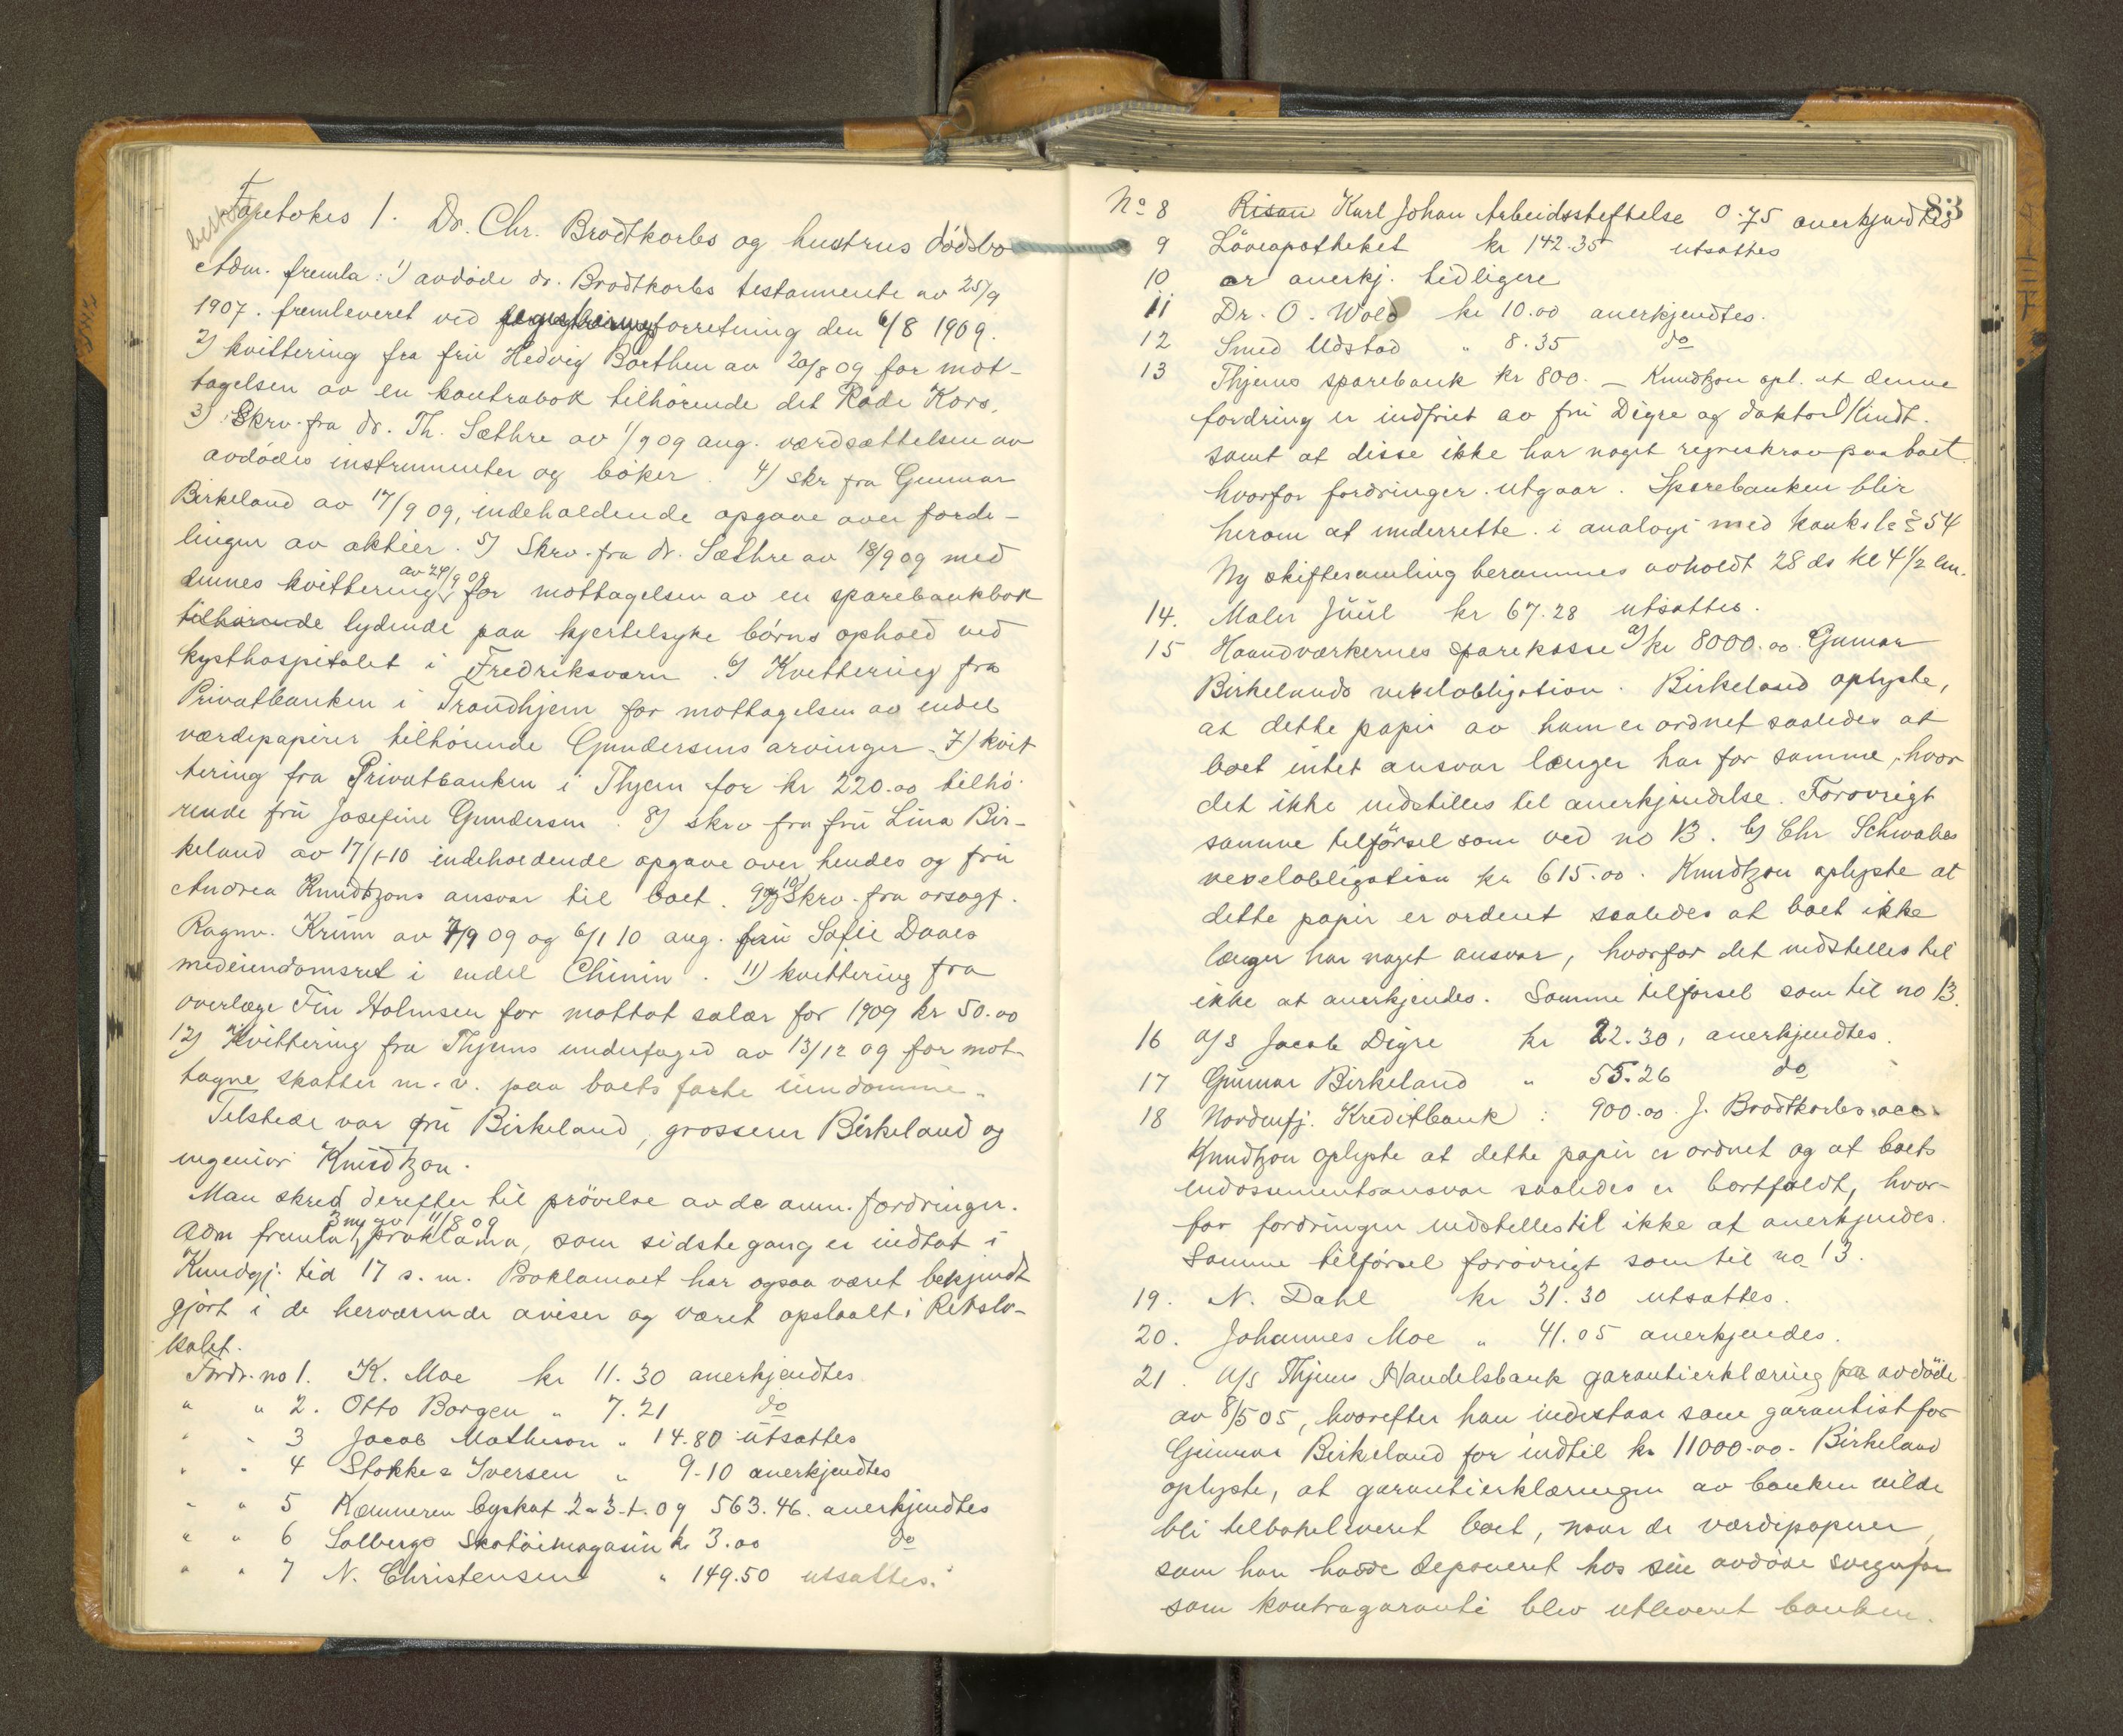 Foretokes 1. Dr. Chr. Brodtkorbs og hustrus dødsbo
Adm. fremla: 1) avdøde dr. Brodtkorbs testamente av 25/9
1907. fremleveret ved registreringsforretning den 6/8 1909.
2) kvittering fra frü Hedvig Barthen av 20/8 09 for mot-
tagelsen av en kontrabok tilhørende det Røde Kors.
3) Skrv. fra dr. Th. Sæthre av 1/9 09 ang. værdsættelsen av
avdødes instrumenter og bøker. 4) skr fra Gunnar
Birkeland av 17/9 09, indeholdende opgave over forde-
lingen av aktier. 5) Skrv. fra dr. Sæthre av 18/9 09 med
dennes kvittering av 24/9 09 for mottagelsen av en sparebankbok
tilhørende lydende paa kjertelsyke børns ophold ved
kysthospitalet i Fredriksværn. 6) Kvittering fra
Privatbanken i Trondhjem for mottagelsen av endel
værdipapirer tilhørende Gundersens arvinger. 7) kvit
tering fra Privatbanken i Thjem for kr 220.00 tilhø-
rende frü Josefine Gundersen. 8) skrv fra frü Lina Bir-
keland av 17/1-10 indeholdende opgave over hendes og frü
Andrea Knudtzons ansvar til boet. 9) og 10) Skrv. fra orsagf.
Ragnv. Krüm av 7/9 09 og 6/1 10 ang. frü Sofie Daaes
medeiendomsret i endel Chinin. 11) kvittering fra
overlæge Fin Holmsen for mottat salær for 1909 kr 50.00
12) Kvittering fra Thjems underfoged av 13/12 09 for mot-
tagne skatter m. v. paa boets faste eiendomme.
Tilstede var frü Birkeland, grosserer Birkeland og
ingeniør Knüdtzon.
Man skred derefter til prøvelse av de anm. fordringer.
Adm fremla 3 ny av 11/8 09 proklama, som sidste gang er indtat i
Kundgj. tid 17 s. m. Proklamaet har ogsaa været bekjendt
gjort i de herværende aviser og været opslaalt i Retslo-
kalet.
Fordr. no 1. K. Moe kr 11.30 anerkjendtes
" " 2. Otto Borgen " 7.21 do
" " 3 Jacob Matheson " 14.80 utsattes
" " 4 Stokke & Iversen " 9-10 anerkjendtes
" " 5 Kæmneren byskat 2 & 3-t. 09 563.46. anerkjendtes
" " 6 Solbergs Skotøimagasin kr 3.00 do
" " 7 N. Christensen " 149.50 utsattes.
83
No 8 Risan Karl Johan Arbeidsstiftelse 0.75 anerkjendtes
9 Löveapotheket kr 142.35 utsattes
10 er anerkj. tidligere
11 Dr. O. Wold kr 10.00 anerkjendtes.
12 Smed Udstad " 8.35 do
13 Thjems sparebank kr 800. — Knudtzon opl. at denne
fordring er indfriet av frü Digre og doktor Kindt.
samt at disse ikke har noget regreskrav paa boet
hvorfor fordringer utgaar. Sparebanken blir
herom at underrette i analogi med konksl § 54
Ny skiftesamling berammes avholdt 28 ds kl 4 1/2 em.
14. Maler Jüül kr 67.28 utsattes.
15 Haandværkernes sparekasse a) kr 8000.00 Gunnar
Birkelands vexelobligation. Birkeland oplyste,
at dette papir av ham er ordnet saaledes at
boet intet ansvar længer har for samme, hvor
det ikke indstilles til anerkjendelse. Forøvrigt
samme tilförsel som ved no 13. b) Chr Schwabes
vexelobligation kr 615.00. Knudtzon oplyste at
dette papir er ordnet saaledes at boet ikke
længer har noget ansvar, hvorfor det indstilles til
ikke at anerkjendes. Samme tilførsel som til no 13.
16 A/S Jacob Digre kr 22.30, anerkjendtes.
17 Gunnar Birkeland " 55.26 do
18 Nordenfj. Kreditbank: 900.00. J. Brodtkorbs acc.
Knudtzon oplyste at dette papir er ordnet og at boets
endossementsansvar saaledes er bortfaldt, hvor-
for fordringen indstilles til ikke at anerkjendes.
Samme tilførsel forøvrigt som til no 13.
19. N. Dahl kr 31.30 utsattes.
20. Johannes Moe " 41.05 anerkjendes.
21. A/S Thjems Handelsbank garantierklæring fra avdöde
av 8/5 05, hvorefter han indestaar som garantist for
Gunnar Birkeland for indtil kr 11000.00. Birkeland
oplyste, at garantierklæringen av banken vilde
bli tilbakeleveret boet, naar de værdipapirer,
som han hadde deponeret hos sin avdøde svigerfar
som kontragaranti blev utleveret banken.